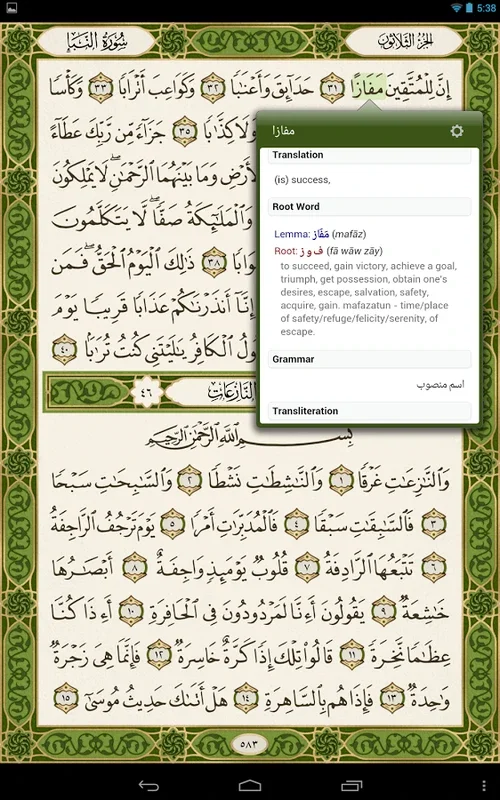 5:38
سُورَةُ النَّبَإِ
الجُزْءُ الثَّلَاثُونَ
إِنَّ لِلْمُتَّقِينَ مَفَازًا ٣١ حَدَآئِقَ وَأَعْنَٰبًا ٣٢ وَكَوَاعِبَ أَتْرَابًا ٣٣ وَكَأْسًا
وَلَا كِذَّٰبًا ٣٥ جَزَآءً مِّن رَّبِّكَ عَطَآءً
وَمَا بَيْنَهُمَا الرَّحْمَٰنِ ۖ لَا يَمْلِكُونَ
وَالْمَلَٰٓئِكَةُ صَفًّا ۖ لَّا يَتَكَلَّمُونَ
٣٨ ذَٰلِكَ الْيَوْمُ الْحَقُّ ۖ فَمَن
إِنَّآ أَنذَرْنَٰكُمْ عَذَابًا قَرِيبًا يَوْمَ
الْكَافِرُ يَٰلَيْتَنِى كُنتُ تُرَٰبًا ٤٠
مفازا
Translation
(is) success,
Root Word
Lemma: مَفَاز (mafāz)
Root: ف و ز (fā wāw zāy)
to succeed, gain victory, achieve a goal,
triumph, get possession, obtain one's
desires, escape, salvation, safety,
acquire, gain. mafazatun - time/place
of safety/refuge/felicity/serenity, of
escape.
Grammar
اسم منصوب
Transliteration
النَّازِعَاتِ
٤٦
بِسْمِ اللَّهِ الرَّحْمَٰنِ الرَّحِيمِ
وَالنَّٰزِعَٰتِ غَرْقًا ١ وَالنَّٰشِطَٰتِ نَشْطًا ٢ وَالسَّٰبِحَٰتِ سَبْحًا
٣ فَالسَّٰبِقَٰتِ سَبْقًا ٤ فَالْمُدَبِّرَٰتِ أَمْرًا ٥ يَوْمَ تَرْجُفُ الرَّاجِفَةُ
٦ تَتْبَعُهَا الرَّادِفَةُ ٧ قُلُوبٌ يَوْمَئِذٍ وَاجِفَةٌ ٨ أَبْصَٰرُهَا
خَٰشِعَةٌ ٩ يَقُولُونَ أَءِنَّا لَمَرْدُودُونَ فِى الْحَافِرَةِ ١٠ أَءِذَا كُنَّا
عِظَٰمًا نَّخِرَةً ١١ قَالُوا۟ تِلْكَ إِذًا كَرَّةٌ خَاسِرَةٌ ١٢ فَإِنَّمَا هِىَ زَجْرَةٌ
وَٰحِدَةٌ ١٣ فَإِذَا هُم بِالسَّاهِرَةِ ١٤ هَلْ أَتَىٰكَ حَدِيثُ مُوسَىٰٓ ١٥
٥٨٣